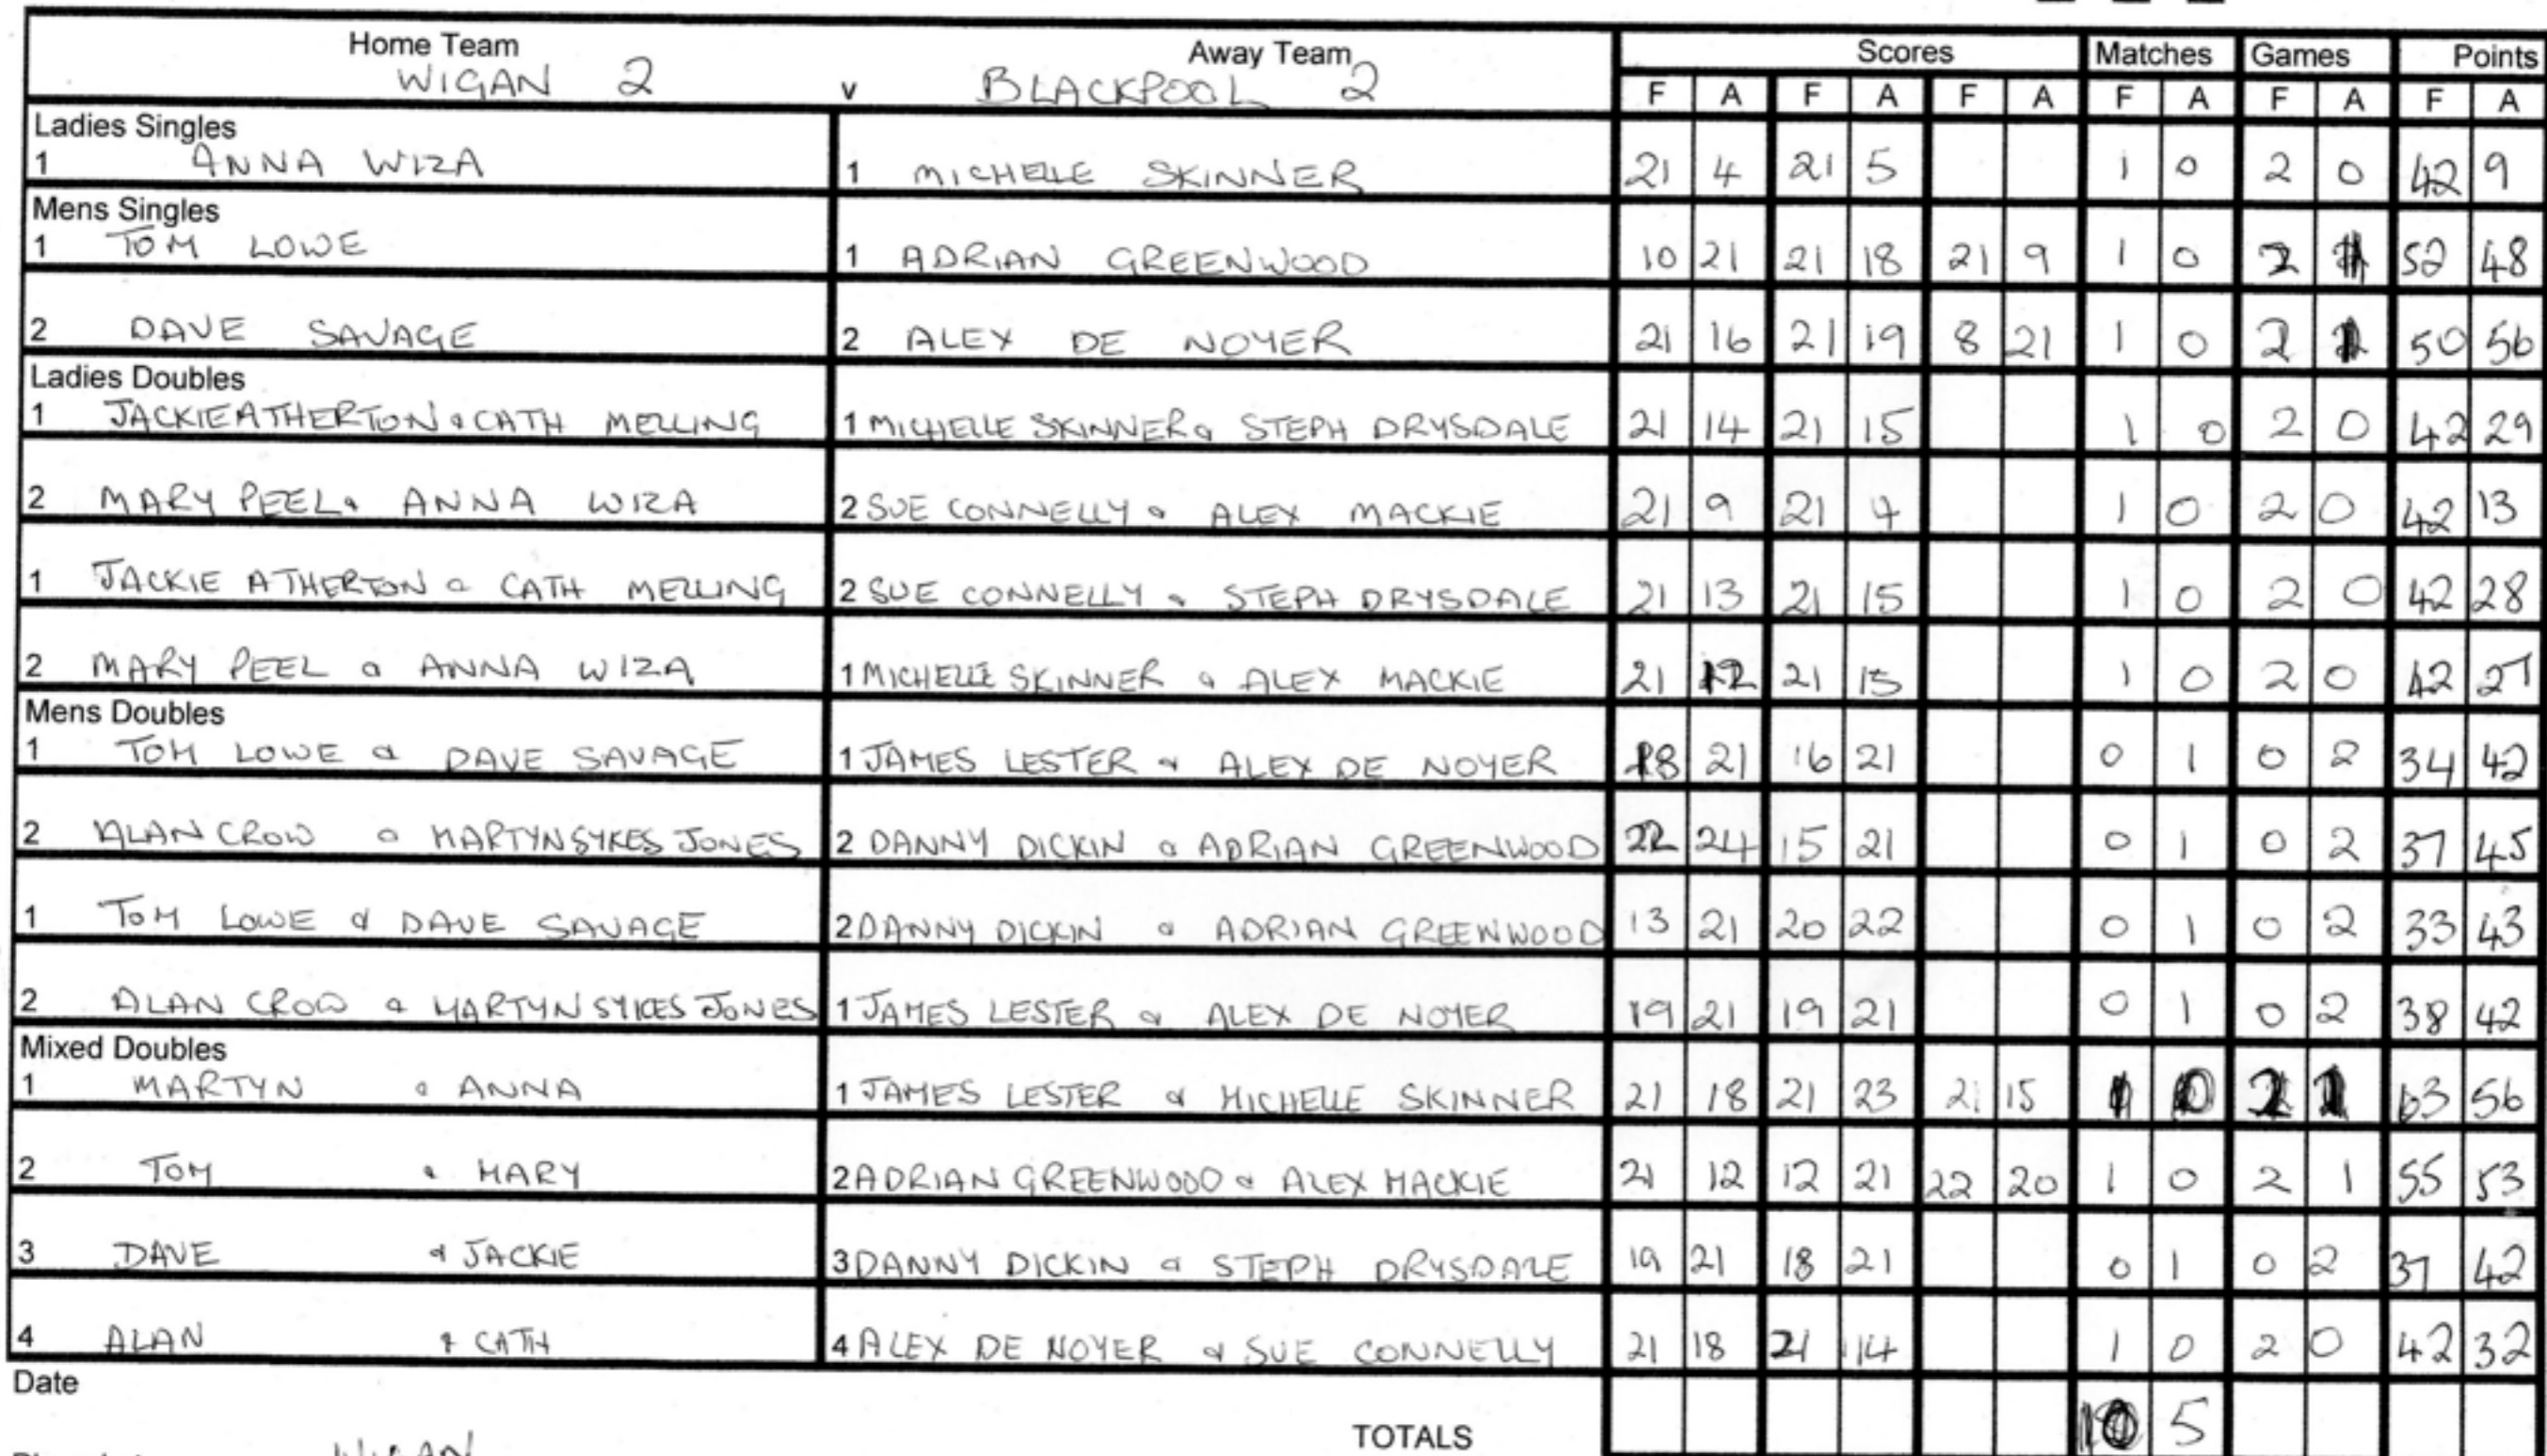 Home Team Away Team Scores Matches Games Points
WIGAN 2 v BLACKPOOL 2 F A F A F A F A F A F A
Ladies Singles
1 ANNA WIZA 1 MICHELLE SKINNER 21 4 21 5 1 0 2 0 42 9
Mens Singles
1 TOM LOWE 1 ADRIAN GREENWOOD 10 21 21 18 21 9 1 0 2 1 52 48
2 DAVE SAVAGE 2 ALEX DE NOYER 21 16 21 19 8 21 1 0 2 1 50 56
Ladies Doubles
1 JACKIE ATHERTON & CATH MELLING 1 MICHELLE SKINNER & STEPH DRYSDALE 21 14 21 15 1 0 2 0 42 29
2 MARY PEEL & ANNA WIZA 2 SUE CONNELLY & ALEX MACKIE 21 9 21 4 1 0 2 0 42 13
1 JACKIE ATHERTON & CATH MELLING 2 SUE CONNELLY & STEPH DRYSDALE 21 13 21 15 1 0 2 0 42 28
2 MARY PEEL & ANNA WIZA 1 MICHELLE SKINNER & ALEX MACKIE 21 12 21 15 1 0 2 0 42 27
Mens Doubles
1 TOM LOWE & DAVE SAVAGE 1 JAMES LESTER & ALEX DE NOYER 18 21 16 21 0 1 0 2 34 42
2 ALAN CROW & MARTYN SYKES JONES 2 DANNY DICKIN & ADRIAN GREENWOOD 22 24 15 21 0 1 0 2 37 45
1 TOM LOWE & DAVE SAVAGE 2 DANNY DICKIN & ADRIAN GREENWOOD 13 21 20 22 0 1 0 2 33 43
2 ALAN CROW & MARTYN SYKES JONES 1 JAMES LESTER & ALEX DE NOYER 19 21 19 21 0 1 0 2 38 42
Mixed Doubles
1 MARTYN & ANNA 1 JAMES LESTER & MICHELLE SKINNER 21 18 21 23 21 15 1 0 2 1 63 56
2 TOM & MARY 2 ADRIAN GREENWOOD & ALEX MACKIE 21 12 12 21 22 20 1 0 2 1 55 53
3 DAVE & JACKIE 3 DANNY DICKIN & STEPH DRYSDALE 19 21 18 21 0 1 0 2 37 42
4 ALAN & CATH 4 ALEX DE NOYER & SUE CONNELLY 21 18 21 14 1 0 2 0 42 32
Date
TOTALS 10 5
WIGAN